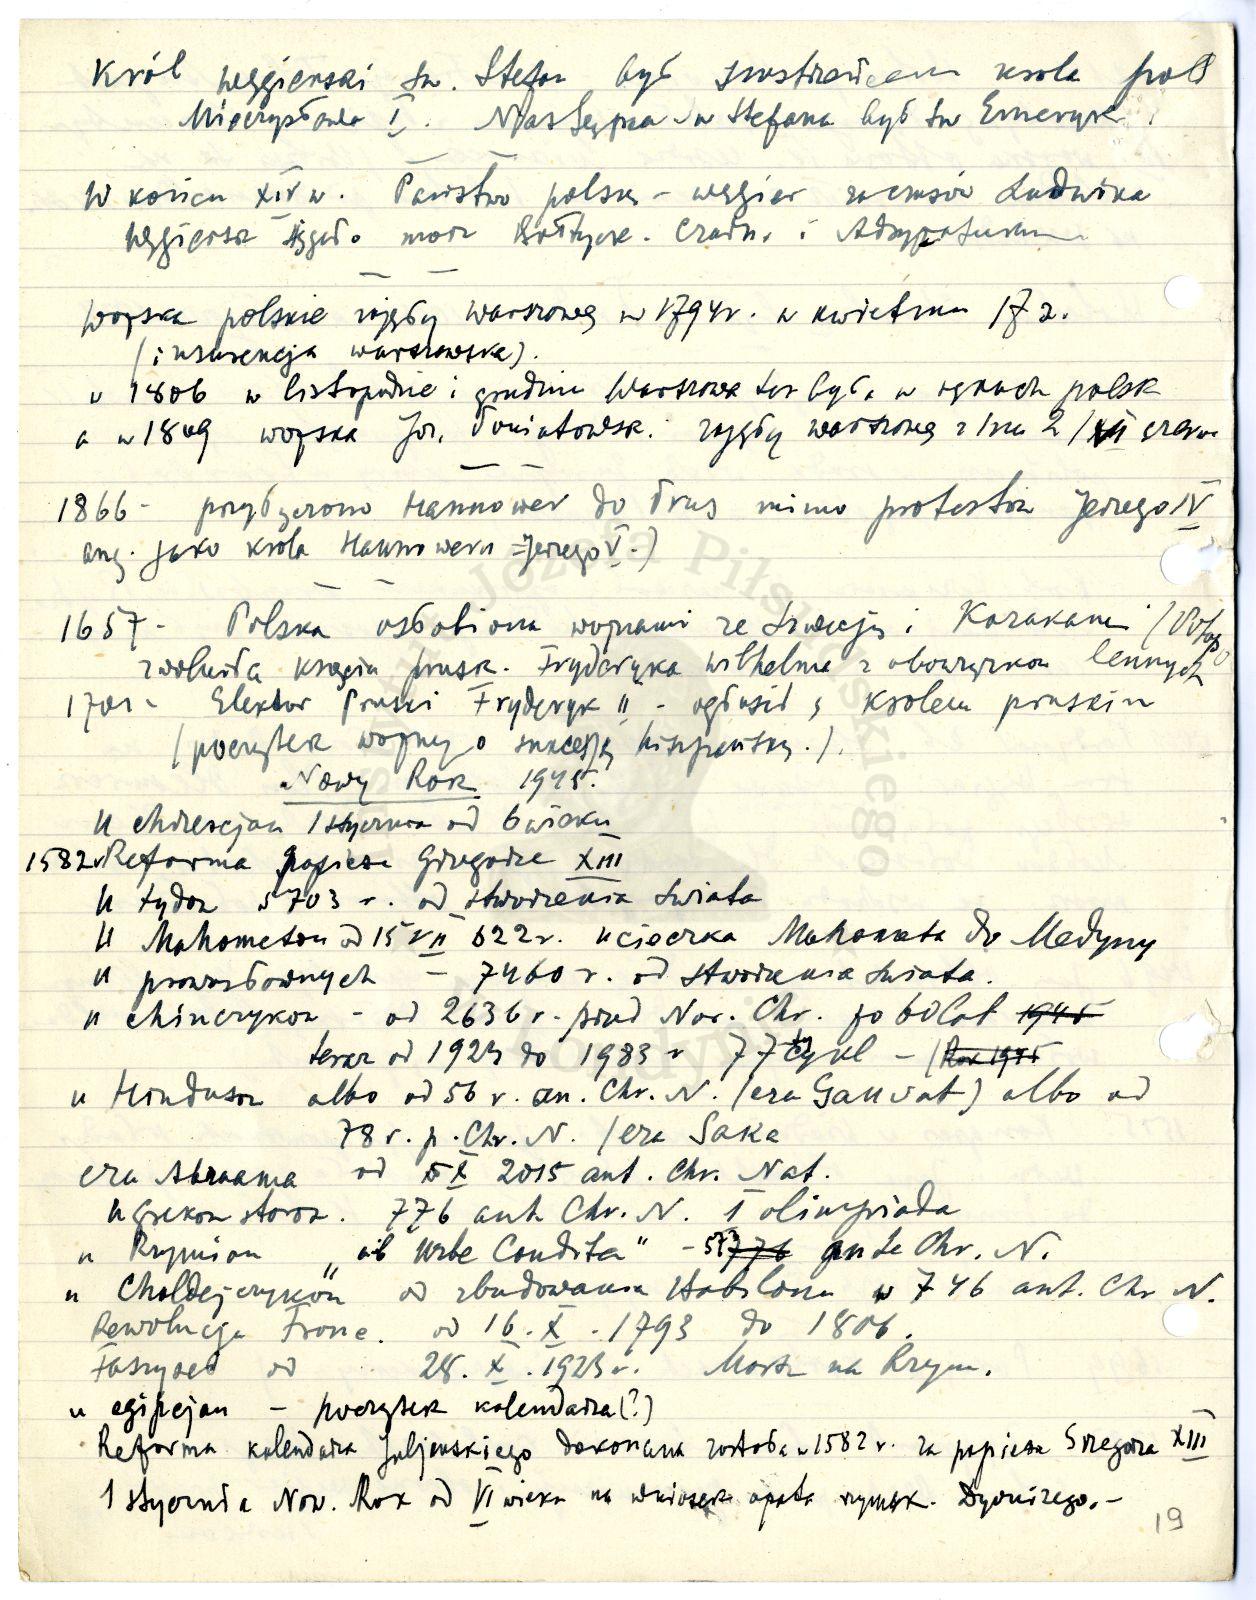 Król węgierski św. Stefan był siostrzeńcem króla pols
Mieczysława I. Następca św Stefana był św Emeryk.
W końcu XIV w. Państwo polsk - węgier za czasów Ludwika
węgiersk sięgało morz Bałtyck. Czarn. i Adryatic
Wojska polskie zajęły Warszawę w 1794 r. w kwietniu 17 a.
(insurekcja warszawska).
w 1806 w listopadzie i grudniu Warszawa też była w rękach polsk
a w 1809 wojska Joz. Poniatowsk. zajęły warszawę z dnia 2/ czerw
1866 - przyłączono Hannower do Prus mimo protestów Jerzego IV
ang. jako króla Hannoweru =Jerzego V.)
1657 - Polska osłabiona wojnami ze Szwecją i Kozakami (Potop
zwolniła księcia prusk. Fryderyka Wilhelma z obowiązków lennych
1701 - Elektor Pruski Fryderyk II - ogłosił s. królem pruskim
(początek wojny o sukcesję hiszpańską.).
Nowy Rok 1945.
U chrześcjan 1 stycznia od 6 wieku
1582 r Reforma papieża Grzegorza XIII
U żydów 5703 r. od stworzenia świata
U Mahometan od 15 VII 622 r. ucieczka Mahometa do Medyny
u prawosławnych - 7460 r. od stworzenia świata.
u chińczyków - od 2636 r. przed Nar. Chr. po 60 lat 1945
teraz od 1923 do 1983 r 77 ty cykl - (Rok 1945
u Hindusów albo od 56 r. an. Chr. N. (era Samvat) albo od
78 r. p. Chr. N. (era Saka
era Abraama od 5 X 2015 ant. Chr. Nat.
u greków staroż. 776 ant Chr. N. 1 olimpiada
u Rzymian "ab Urbe Condita" - 776 ante Chr. N.
u "Chaldejczyków" od zbudowania Babilonu w 746 ant. Chr N.
Rewolucja Franc. od 16. X. 1793 do 1806.
Faszyści od 28. X. 1923 r. Marsz na Rzym.
u egipcjan - początek kalendarza (?)
Reforma kalendarza Juljańskiego dokonana została w 1582 r. za papieża Grzegorza XIII
1 stycznia Now. Rok od VI wieku na wniosek opata rzymsk. Dyonizego. -
19